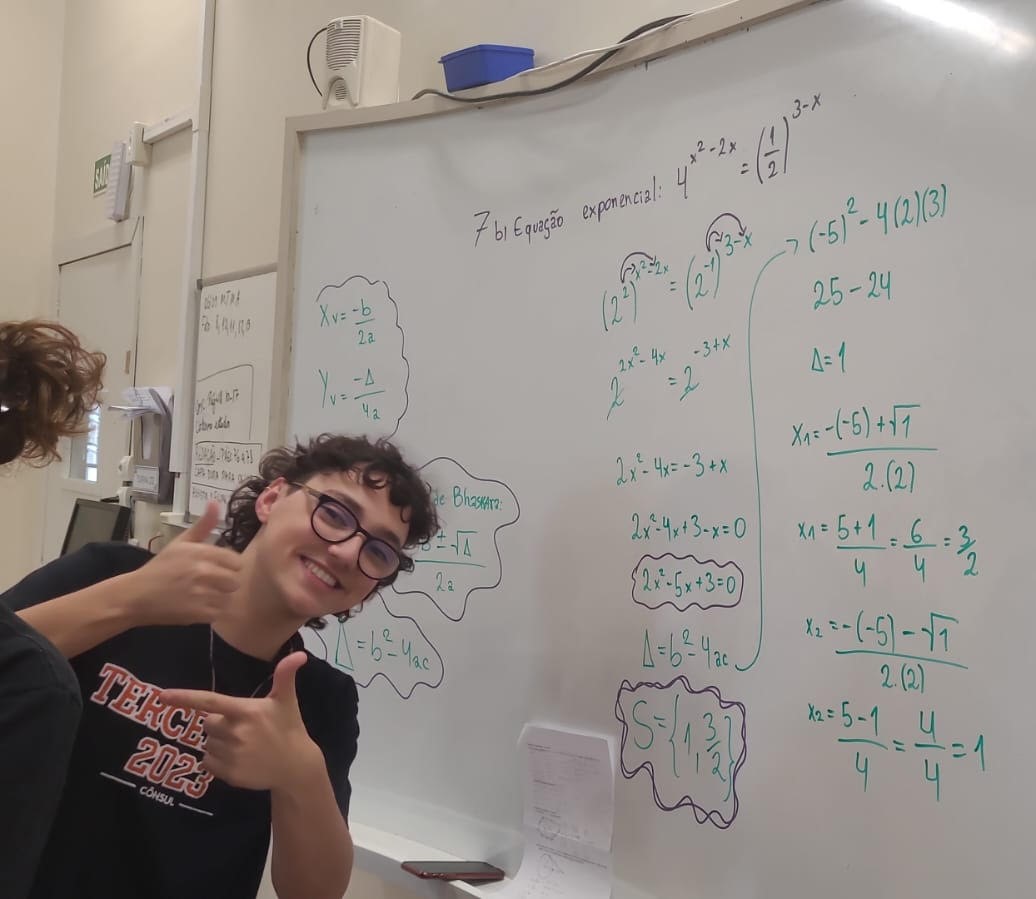 SAÍD
7 b) Equação exponencial: 4^(x² - 2x) = (1/2)^(3-x)
Xv = -b/2a
Yv = -Δ/4a
de Bhaskara:
± √Δ
2a
Δ = b² - 4ac
(2²)^(x²-2x) = (2⁻¹)^(3-x)
2^(2x² - 4x) = 2^(-3+x)
2x² - 4x = -3 + x
2x² - 4x + 3 - x = 0
2x² - 5x + 3 = 0
Δ = b² - 4ac
S = {1, 3/2}
(-5)² - 4(2)(3)
25 - 24
Δ = 1
X₁ = -(-5) + √1 / 2.(2)
X₁ = 5+1/4 = 6/4 = 3/2
X₂ = -(-5) - √1 / 2.(2)
X₂ = 5-1/4 = 4/4 = 1
TERCE
2023
CÔNSUL